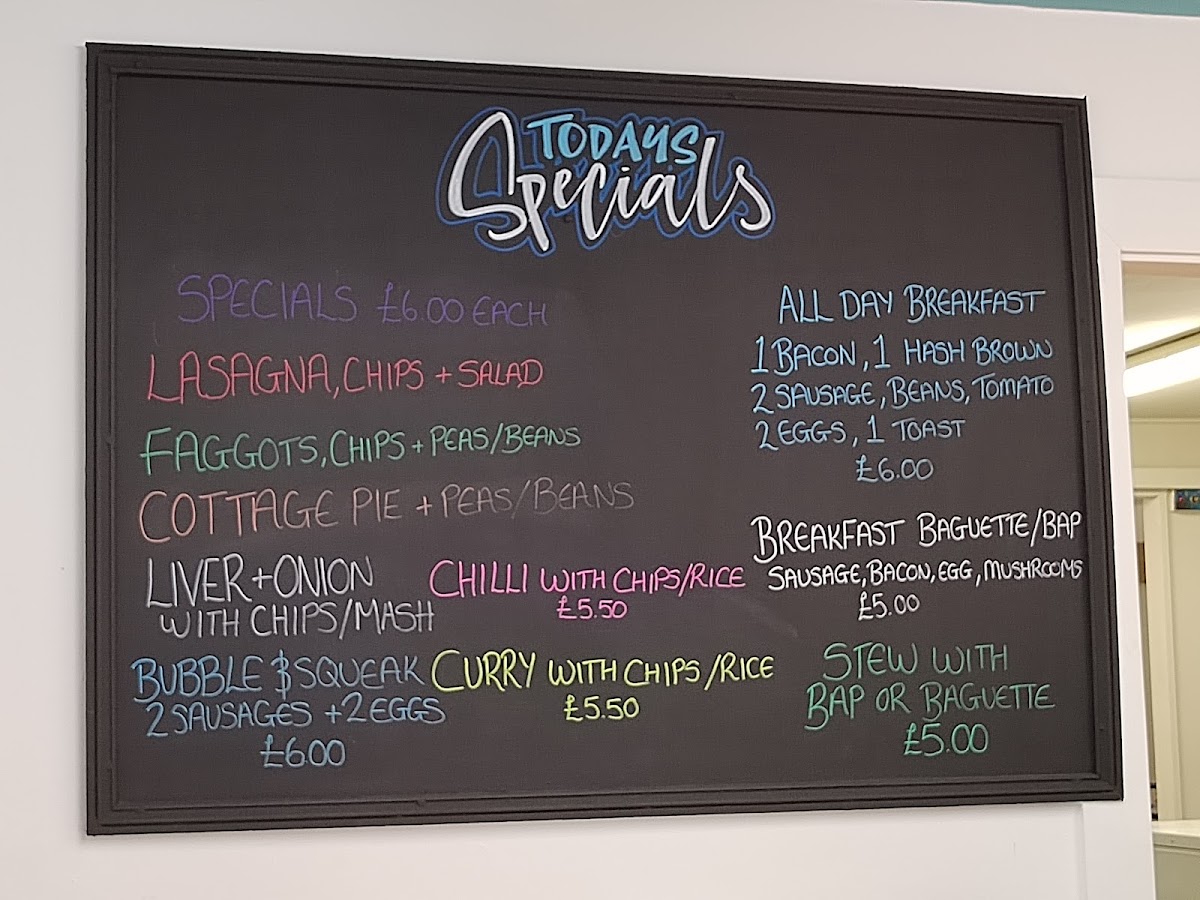 TODAYS
Specials
SPECIALS £6.00 EACH
LASAGNA, CHIPS + SALAD
FAGGOTS, CHIPS + PEAS/BEANS
COTTAGE PIE + PEAS/BEANS
LIVER + ONION
WITH CHIPS/MASH
BUBBLE $ SQUEAK
2 SAUSAGES + 2 EGGS
£6.00
CHILLI WITH CHIPS/RICE
£5.50
CURRY WITH CHIPS/RICE
£5.50
ALL DAY BREAKFAST
1 BACON, 1 HASH BROWN
2 SAUSAGE, BEANS, TOMATO
2 EGGS, 1 TOAST
£6.00
BREAKFAST BAGUETTE/BAP
SAUSAGE, BACON, EGG, MUSHROOMS
£5.00
STEW WITH
BAP OR BAGUETTE
£5.00